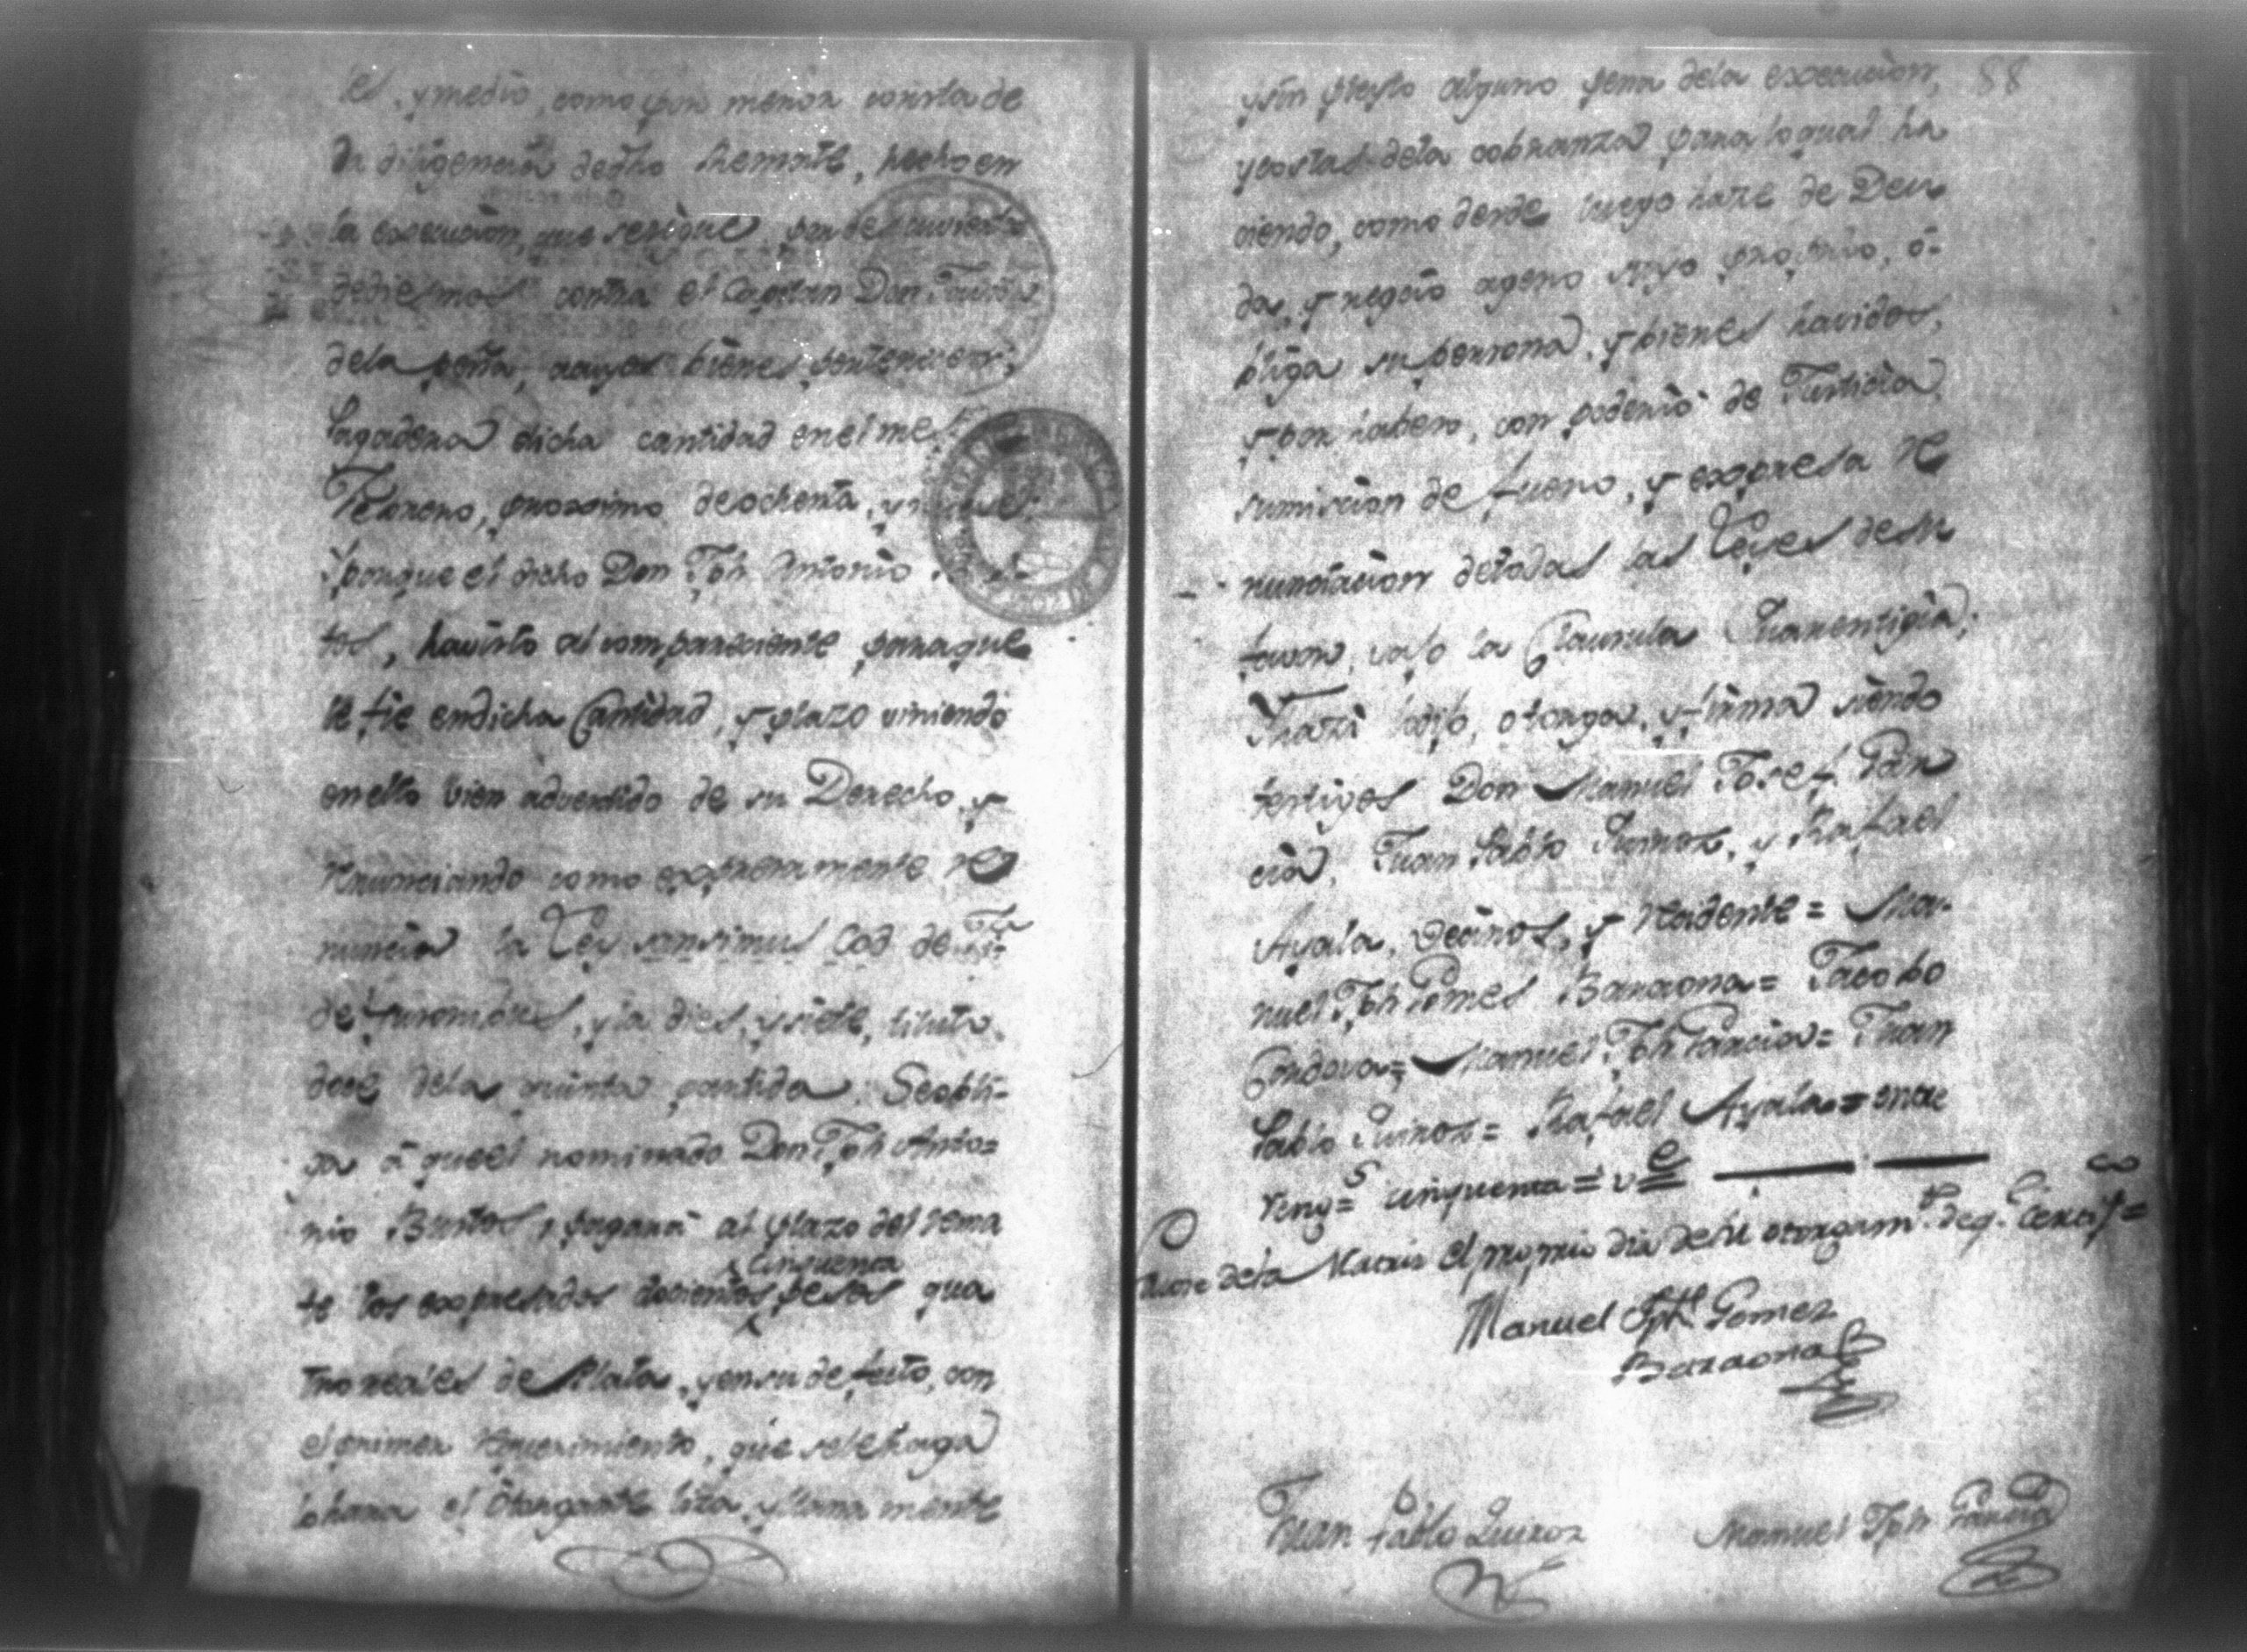 les, y medio, como por menor consta de
la diligencia de dho Remate, hecho en
la execucion, que se sigue, por descuvierto
de diesmos contra el Capitan Don
de la peña, a cuyos bienes pertenecien;
Pagadera dicha cantidad en el mes
Febrero, proxsimo de ochenta, y nueve:
Y porque el dicho Don Jph Antonio
tos, ha visto al compareciente para que
le fie en dicha Cantidad, y plazo viniendo
en ello vien advertido de su Derecho, y
Renunciando como expresamente re
nuncia la Ley sansimus Cod de
de fureiusores, y la dies, y siete, titulo
doce de la quinta partida. Se obli-
ga á que el nominado Don Jph Anto=
nio Bustos, pagará al plazo del rema
cinquenta
te los expresados docientos pesos qua
tro reales de Plata, y en su defecto, con
el primer Requerimiento, que se le haga
lo hara el Otorgante liza, y llana mente
y sin pleyto alguno pena de la execucion, 88
y costas de la cobranza para lo qual ha
ciendo, como desde luego haze de Deu
da, y negcio ageno suyo proprio, o-
bliga su persona, y bienes havidos,
y por haber, con poderio de Justicia
sumiscion de fuero, y expresa Re
nunctacion de todas las Leyes de su
favor, vajo la Clausula Guarentigia;
I hazi lo dijo, otorga, y firma siendo
testigos Don Manuel Josef Gar
cia, Juan Pablo Quiros, y Rafael
Ayala, vecinos, y Recidente = Ma-
nuel Jph Gomes Baraona = Jacobo
Cordova = Manuel Jph Garcia = Juan
Pablo Quiros = Rafael Ayala = entre
Reng.s = cinquenta = v.e
de la Matris el propio dia de su otorgam.to de q.e Certif.o =
Manuel Jph Gomez
Baraona
Juan Pablo Quiros Manuel Jph Garcia